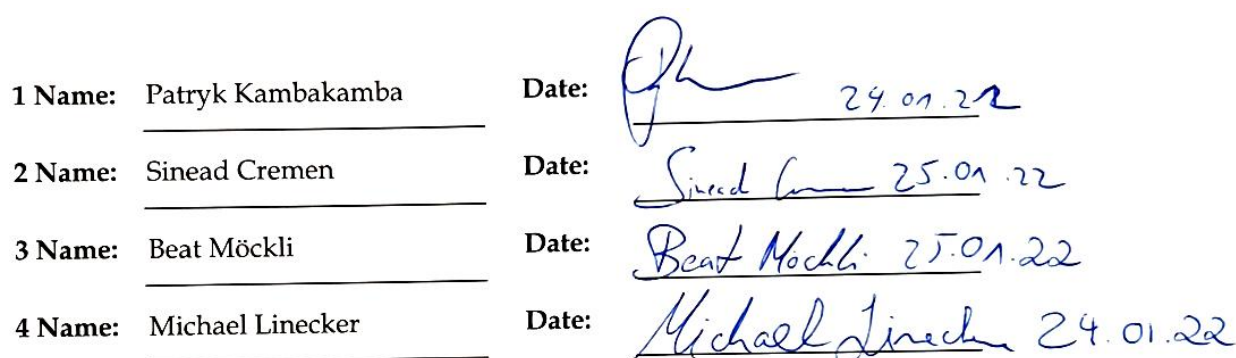 1 Name: Patryk Kambakamba Date: 24.01.22
2 Name: Sinead Cremen Date: Sinead 25.01.22
3 Name: Beat Möckli Date: Beat Möckli 25.01.22
4 Name: Michael Linecker Date: Michael Linecker 24.01.22